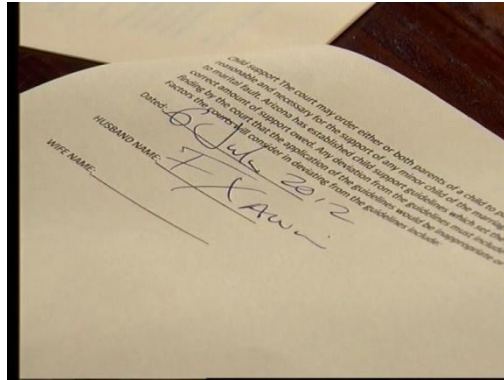 Child support The court may order either or both parents of a child to
reasonable and necessary for the support of any minor child of the marriag
to marital fault. Arizona has established child support guidelines which set the
correct amount of support owed. Any deviation from the guidelines must include
finding by the court that the application of the guidelines would be inappropriate or
Factors the court will consider in deviating from the guidelines include:
Dated: 6 July 2012
HUSBAND NAME:
WIFE NAME: